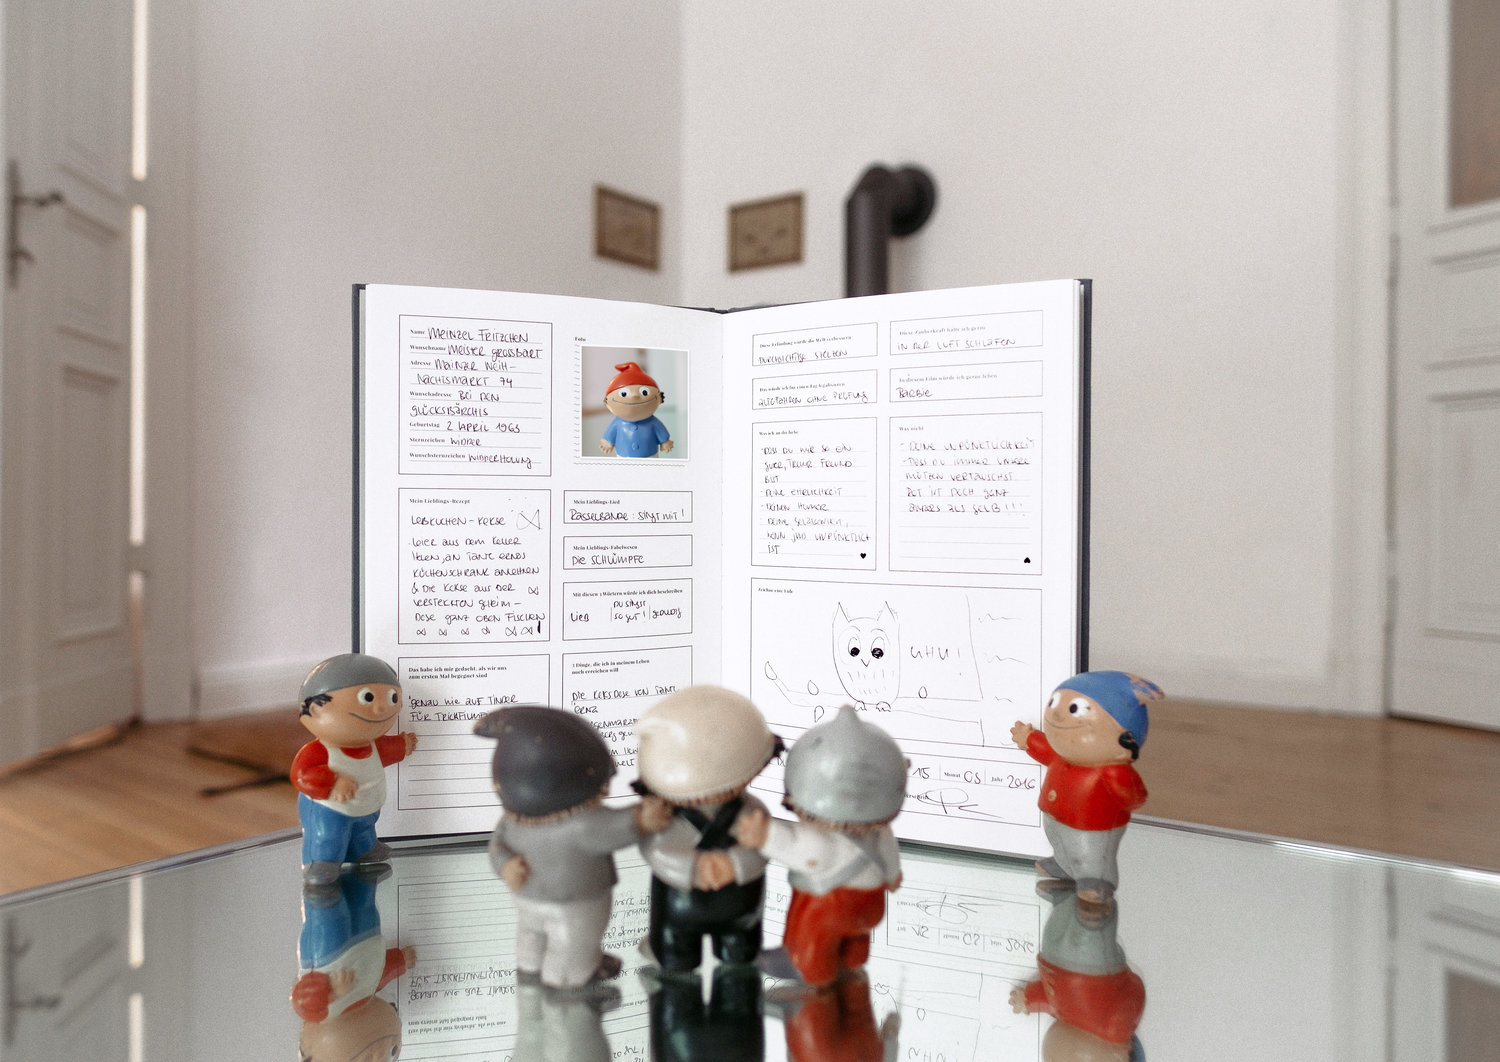 Name MEINZEL FRITZCHEN
Wunschname MEISTER GROSSBART
Adresse MAINZER WEIH-
NACHTSMARKT 74
Wunschadresse BEI DEN
GLÜCKSBÄRCHIS
Geburtstag 2 APRIL 1963
Sternzeichen WIDDER
Wunschsternzeichen WIDDERHONUNG
Foto
Mein Lieblings-Rezept
LEBKUCHEN-KEKSE
LEITER AUS DEM KELLER
HOLEN, AN TANTE ERNAS
KÜCHENSCHRANK ANLEHNEN
& DIE KEKSE AUS DER
VERSTECKTEN GEHEIM-
DOSE GANZ OBEN FISCHEN
Mein Lieblings-Lied
RASSELBANDE: SINGT MIT!
Mein Lieblings-Fabelwesen
DIE SCHLÜMPFE
Mit diesen 3 Wörtern würde ich dich beschreiben
LIEB
DU SINGST
SO GUT!
Das habe ich mir gedacht, als wir uns
zum ersten Mal begegnet sind
GENAU WIE AUF TINDER
FÜR TRICKFILM
3 Dinge, die ich in meinem Leben
noch erreichen will
DIE KEKSDOSE VON TANTE
ERNA
Diese Erfindung würde die Welt verbessern
DURCHSICHTIGE STELZEN
Diese Zauberkraft hätte ich gern
IN DER LUFT SCHLAFEN
Das würde ich für einen Tag legalisieren
AUTOFAHREN OHNE PRÜFUNG
In diesem Film würde ich gerne leben
BARBIE
Was ich an dir liebe
-DASS DU MIR SO EIN
GUTER, TREUER FREUND
BIST
-DEINE EHRLICHKEIT
-DEINEN HUMOR
-DEINE
WENN JMD UNPÜNKTLICH
IST
Was nicht
-DEINE UNPÜNKTLICHKEIT
-DASS DU IMMER UNSERE
MÜTZEN VERTAUSCHST.
ROT IST DOCH GANZ
ANDERS ALS GELB!!!
Zeichne eine Eule
UHU!
15 Monat 05 Jahr 2016